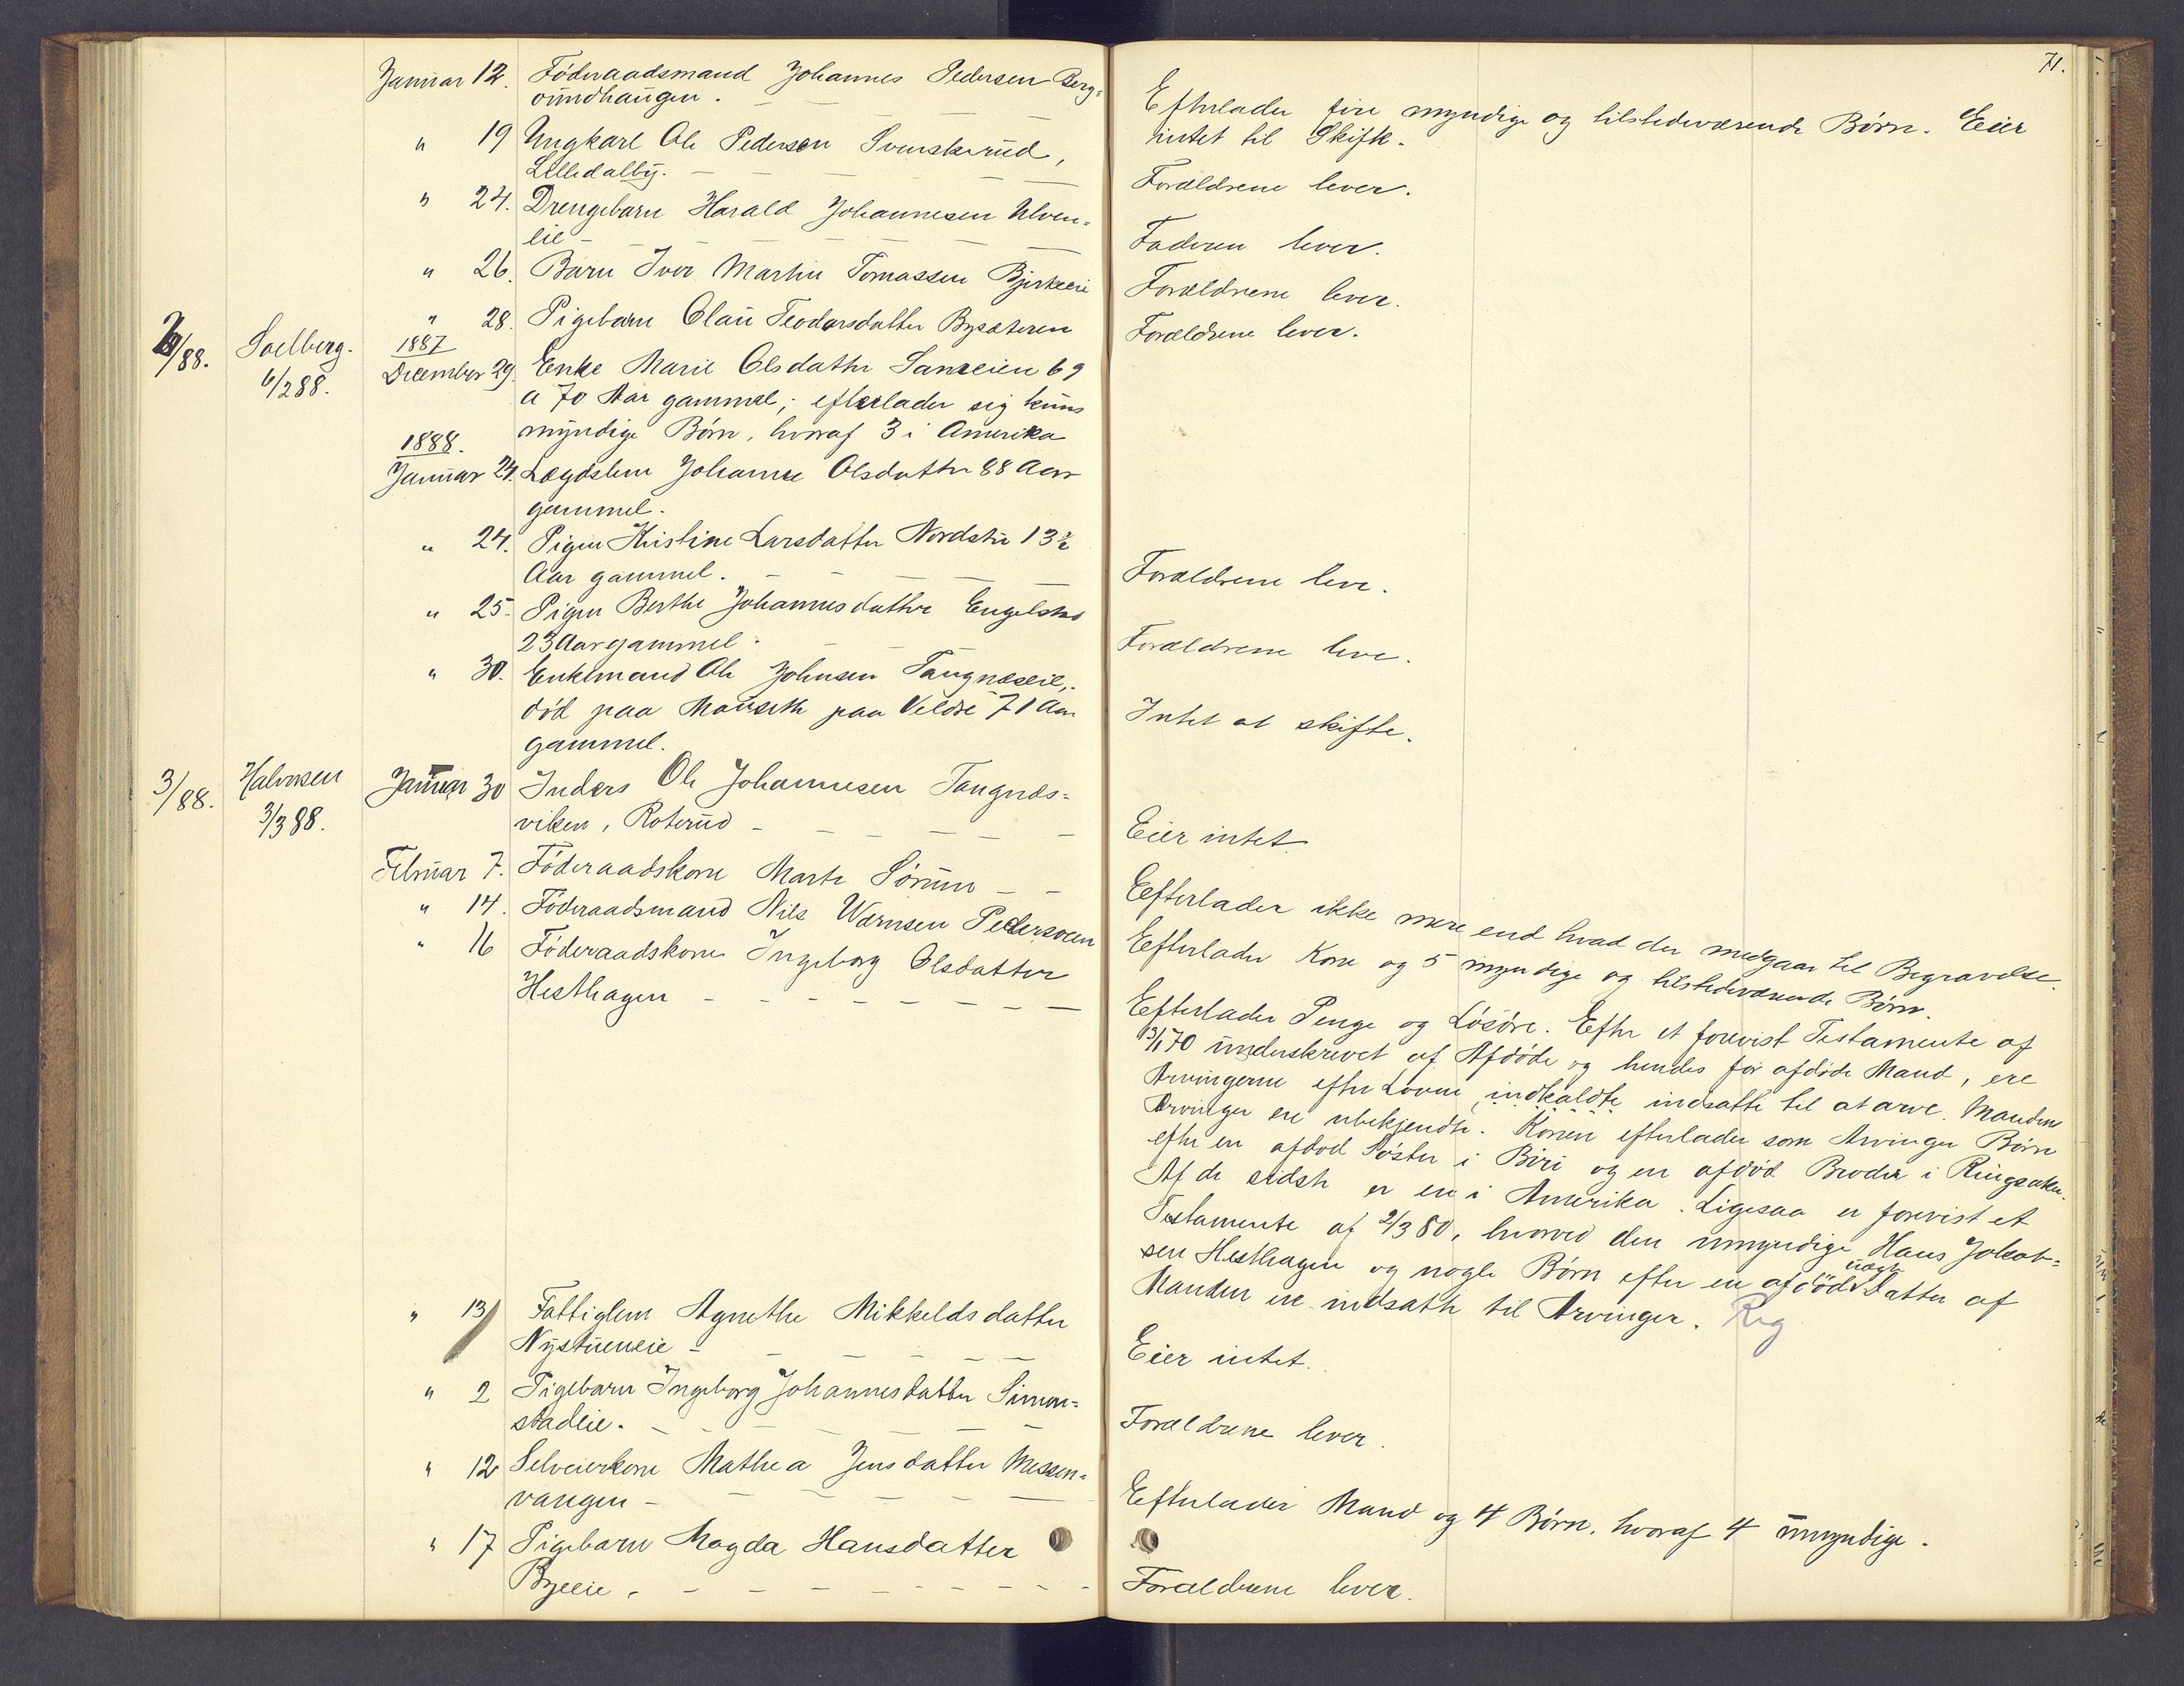 71.
Januar 12. Föderaadsmand Johannes Pedersen Berg-
rundhaugen.
Efterlader fire myndige og tilstedeværende Børn. Eier
intet til Skifte.
" 19 Ungkarl Ole Pedersen Svenskerud,
Lilledalby.
Forældrene lever.
" 24. Drengebarn Harald Johannesen Ulven-
eie
Faderen lever.
" 26. Barn Iver Martin Tomassen Bjerkeeie
Forældrene lever.
" 28. Pigebarn Olau Teodorsdatter Bysæteren
Forældrene lever.
/88. Soelberg. 6/2 88.
1887
December 29. Enke Marie Olsdatter Sanneien 69
a 70 Aar gammel; efterlader sig kuns
myndige Børn, hvoraf 3 i Amerika
1888.
Januar 24. Lægdslem Johanne Olsdatter 88 Aar
gammel.
" 24. Pigen Kristine Larsdatter Nordstu 13½
Aar gammel.
Forældrene leve.
" 25. Pigen Berthe Johannesdatter Engelstad
23 Aar gammel.
Forældrene leve.
" 30. Enkemand Ole Johnsen Tangnæseie,
død paa Mauseth paa Veldre 71 Aar
gammel.
Intet at skifte.
3/88. Halvorsen 3/3 88.
Januar 30 Inders Ole Johannesen Tangnæs-
viken, Roterud
Eier intet.
Februar 7. Föderaadskone Marte Sörum
Eefterlader ikke mere end hvad der medgaar til Begravelse.
" 14. Föderaadsmand Nils Warnsen Pedersveen
Eefterlader Kone og 5 myndige og tilstedeværende Børn.
" 16 Föderaadskone Ingeborg Olsdatter
Hesthagen
Eefterlader Penge og Løsøre. Efter et forevist Testamente af
13/1 70 underskrevet af Afdøde og hendes før afdøde Mand, ere
Arvingerne efter Loven indkaldte indsatte til at arve. Mandens
Arvinger ere ubekjendte. Konen efterlader som Arvinger Børn
efter en afdød Søster i Biri og en afdød Broder i Ringsaker.
Af de sidste er en i Amerika. Ligesaa er forevist et
Testamente af 2/3 80, hvorved den umyndige Hans Jakob-
sen Hesthagen og nogle Børn efter en afdød uægte Datter af
Manden ere indsatte til Arvinger. Reg
" 13 Fattiglem Agnethe Mikkelsdatter
Nystueneie
Eier intet.
" 2 Pigebarn Ingeborg Johannesdatter Simen-
stadeie.
Forældrene lever.
" 12 Selveierkone Mathea Jensdatter Messen-
vangen
Efterlader Mand og 4 Børn, hvoraf 4 umyndige.
" 17 Pigebarn Magda Hansdatter
Byeeie.
Forældrene lever.